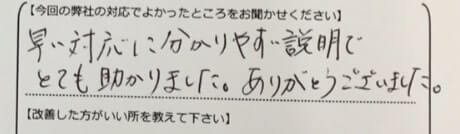 【今回の弊社の対応でよかったところをお聞かせください】
早い対応に分かりやすい説明で
とても助かりました。ありがとうございました。
【改善した方がいい所を教えて下さい】